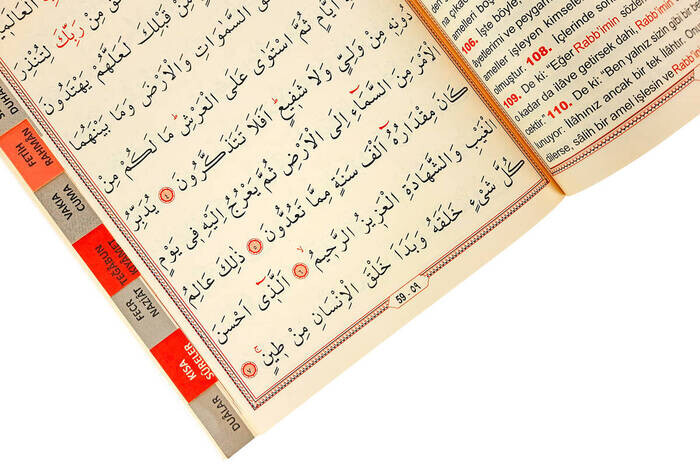 الْعَالَمِينَ
مِنْ رَبِّكَ لِتُنْذِرَ
مِنْ قَبْلِكَ لَعَلَّهُمْ يَهْتَدُونَ
السَّمٰوَاتِ وَالْاَرْضَ وَمَا بَيْنَهُمَا
اَيَّامٍ ثُمَّ اسْتَوٰى عَلَى الْعَرْشِۜ مَا لَكُمْ مِنْ
دُونِه۪ مِنْ وَلِيٍّ وَلَا شَف۪يعٍۜ اَفَلَا تَتَذَكَّرُونَ ٤ يُدَبِّرُ
الْاَمْرَ مِنَ السَّمَٓاءِ اِلَى الْاَرْضِ ثُمَّ يَعْرُجُ اِلَيْهِ ف۪ي يَوْمٍ
كَانَ مِقْدَارُهُٓ اَلْفَ سَنَةٍ مِمَّا تَعُدُّونَ ٥ ذٰلِكَ عَالِمُ
الْغَيْبِ وَالشَّهَادَةِ الْعَز۪يزُ الرَّح۪يمُۙ ٦ اَلَّذ۪ٓي اَحْسَنَ
كُلَّ شَيْءٍ خَلَقَهُ وَبَدَاَ خَلْقَ الْاِنْسَانِ مِنْ ط۪ينٍۚ ٧
59 - ٥٩
DUHÂ
FETİH
RAHMÂN
VAKIA
CUMA
TEĞÂBUN
KIYÂMET
NAZİÂT
FECR
KISA
SÛRELER
DUÂLAR
106. İşte böyle
âyetlerimi ve peygamb
ameller işleyen kimseler
olmuştur. 108. İçlerinde son
109. De ki: "Eğer Rabb'imin sözler
o kadar da ilâve getirsek dahi, Rabb'imin
cektir." 110. De ki: "Ben yalnız sizin gibi bir
lunuyor: İlâhınız ancak bir tek İlâhtır. Onu
dilerse, sâlih bir amel işlesin ve Rabb'i